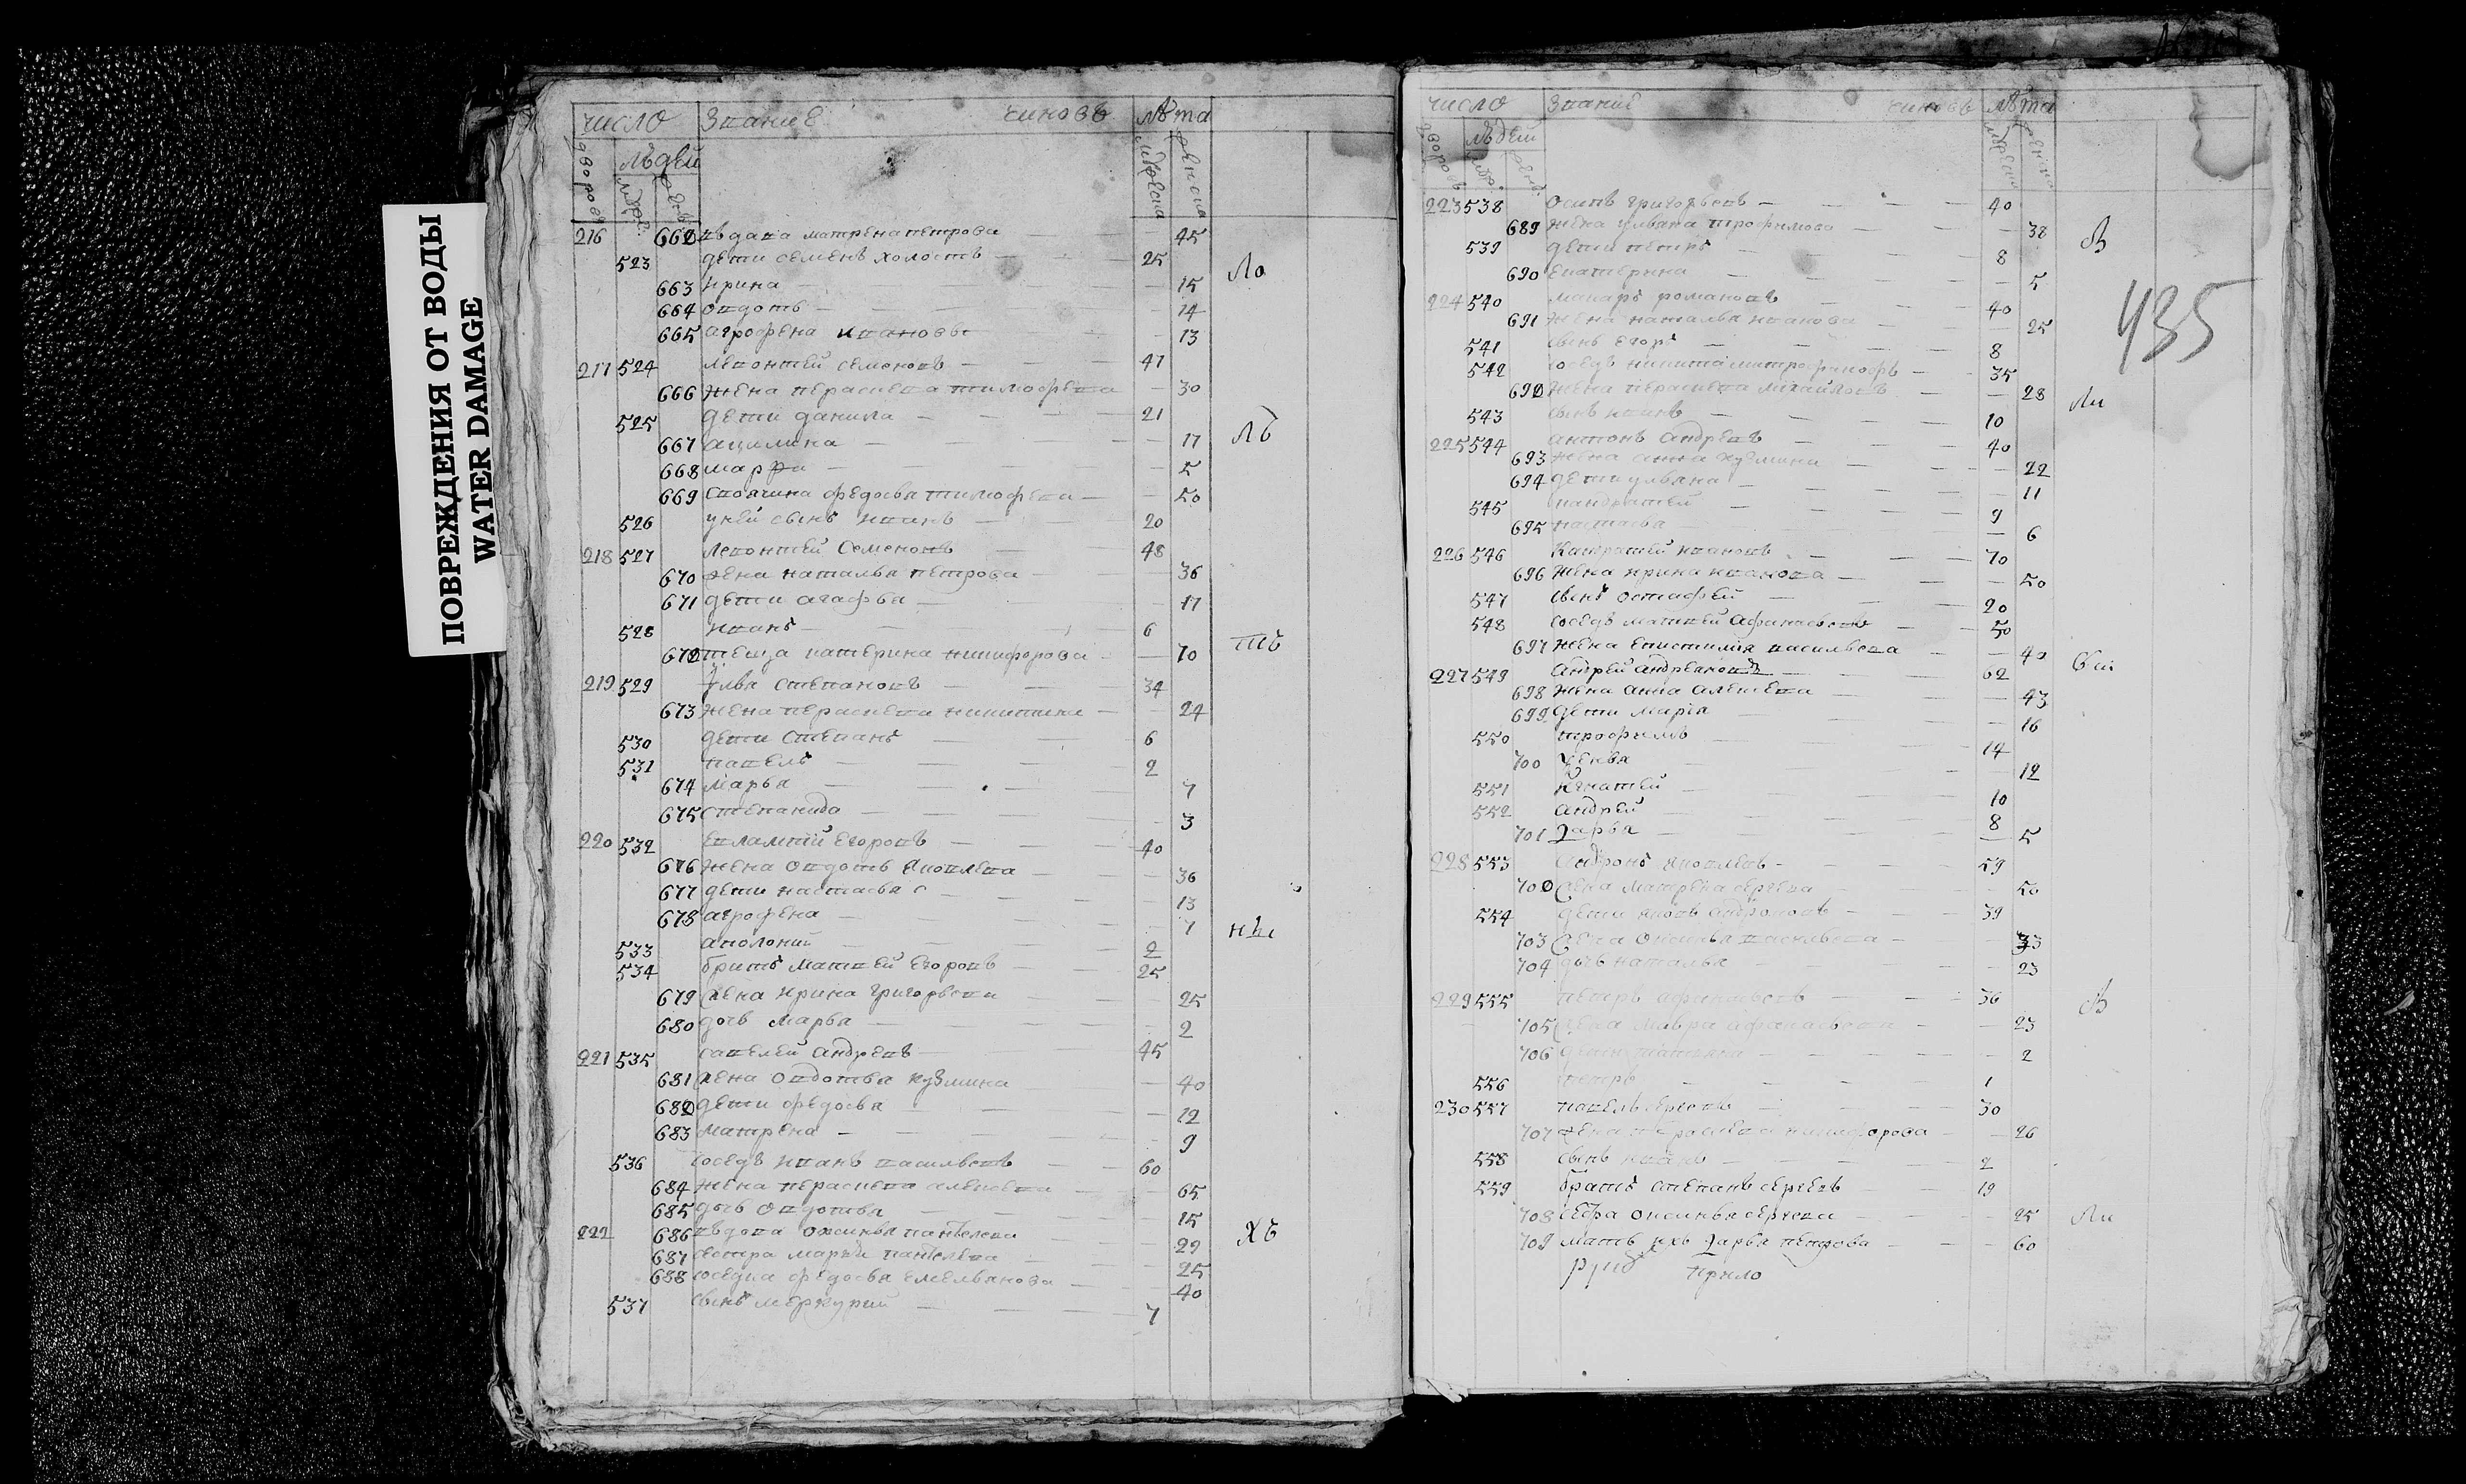 ПОВРЕЖДЕНИЯ ОТ ВОДЫ
WATER DAMAGE
число званиe чиновъ лѣта
дворовъ людей
216 662 вдава матрена петрова — 45
523 дети семенъ холостъ — 25
663 ирина — 15
664 овдоть — 14
665 агрофена ивановы 13
217 524 левонтей семеновъ — 47
666 жена парасковя тимофева — 30
525 дети данила — 21
667 акилина — 17
668 марфа — 5
669 своячина федосья тимофева — 50
526 уней сынъ иванъ — 20
218 527 левонтей семеновъ 48
670 жена наталья петрова — 36
671 дети агафья — 17
528 иванъ — 6
672 теща катерина никифорова — 70
219 529 илья степановъ — 34
673 жена никитина — 24
530 дети степанъ 6
531 павелъ — 2
674 марья — 7
675 степанида — 3
220 532 евлампій егоровъ — 40
676 жена овдоть яковлева — 36
677 дети настасья — 13
678 агрофена — 7
533 аполоній — 2
534 братъ матвей егоровъ — 25
679 жена ирина григорьева — 25
680 дочь марья — 2
221 535 савелей андревъ — 45
681 жена овдотья кузмина — 40
682 дети федосья — 12
683 матрена — 9
536 соседъ иванъ васильевъ — 60
684 жена алексева — 65
685 дочь овдотья 15
222 686 вдова оксинья пантелева 29
687 сестра марья пантелева 25
688 соседка федосья емельянова 40
537 сынъ меркурий — 7
ло
лъ
тъ
хъ
число званий чиновъ лѣта
дворовъ людей
223 538 осипъ григорьевъ — 40
689 жена ульяна трофимова — 38
539 дети петръ — 8
690 екатерина — 5
224 540 макаръ романовъ — 40
691 жена наталья иванова — 25
541 сынъ егоръ — 8
542 соседъ никита митрофановъ — 35
692 жена михайлова — 28
543 сынъ иванъ — 10
225 544 антонъ андревъ — 40
693 жена анна кузмина — 22
694 дети ульяна — 11
545 кандратей — 9
695 настасья — 6
226 546 кандратей ивановъ — 70
696 жена ирина иванова — 50
547 сынъ остафей — 20
548 соседъ матвей афанасьевъ — 50
697 жена епистимия васильева — 40
227 549 андрей андреяновъ — 62
698 жена анна алексева — 43
699 дети марія — 16
550 трофимъ — 14
700 — 12
551 игнатей — 10
552 андрей — 8
701 дарья — 5
228 553 андронъ яковлевъ — 59
702 жена матрена сергева — 50
554 дети яковъ андроновъ — 39
703 жена оксинья васильева — 33
704 дочь наталья — 23
229 555 петръ афанасьевъ — 36
705 жена мавра афанасьева — 23
706 дети татьяна — 2
556 петръ — 1
230 557 павелъ сергевъ — 30
707 жена никифорова — 26
558 сынъ иванъ — 2
559 братъ степанъ сергевъ — 19
708 сестра оксинья сергева — 25
709 мать ихъ дарья петрова — 60
435
ли
ли